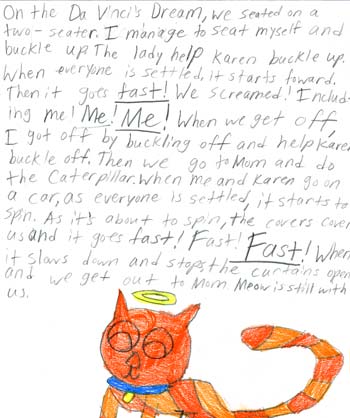 On the Da Vinci's Dream, we seated on a
two-seater. I manage to seat myself and
buckle up The lady help Karen buckle up.
When everyone is settled, it starts toward.
Then it goes fast! We screamed! Includ-
ing me! Me! Me! When we get off,
I got off by buckling off and help Karen
buckle off. Then we go to Mom and do
the Caterpillar. When me and Karen go on
a car, as everyone is settled, it starts to
spin. As it's about to spin, the covers cover
us and it goes fast! Fast! Fast! When
it slaws down and stops the curtains open
and we get out to Mom Meow is still with
us.